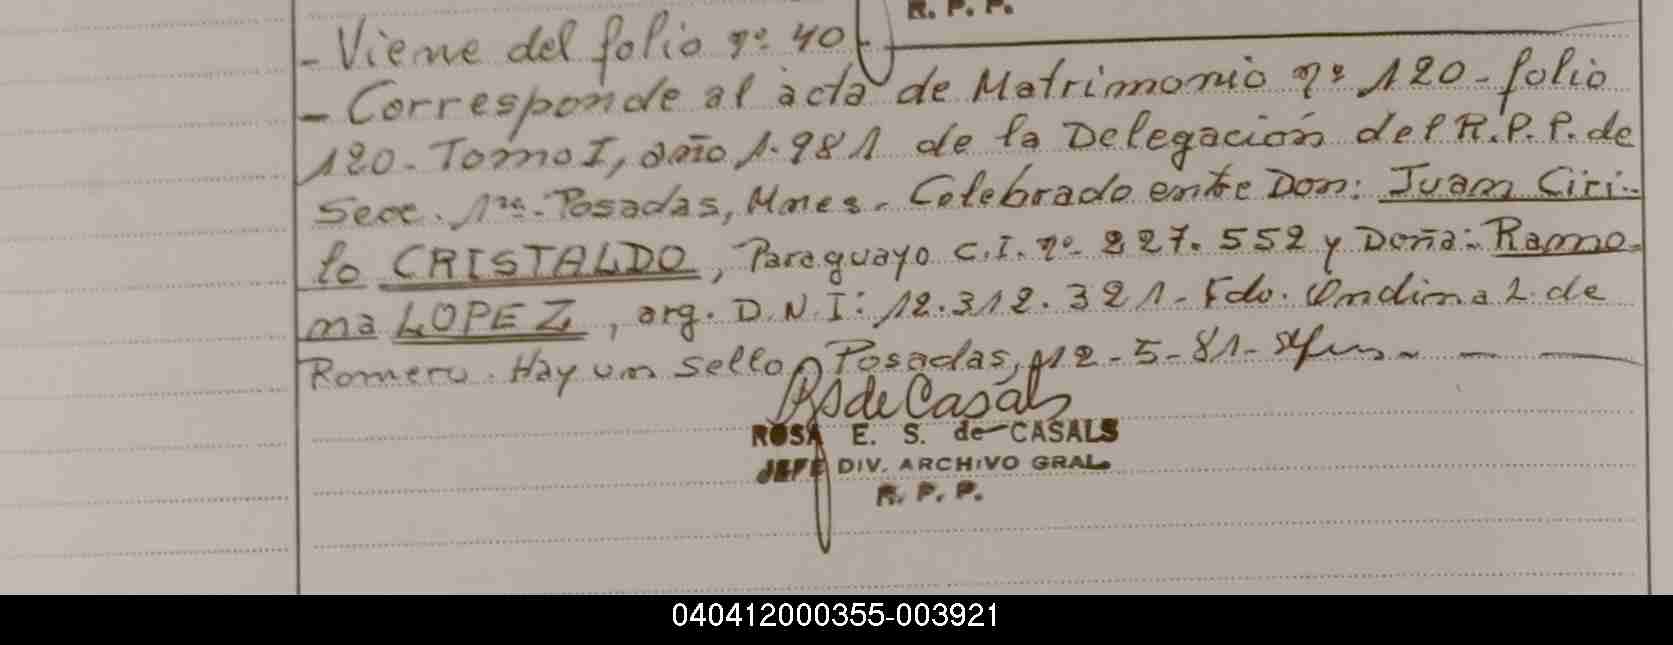 R. P. P.
- Viene del folio nº 40 -
- Corresponde al acta de Matrimonio nº 120 - folio
120 - Tomo I, año 1.981 de la Delegación del R.P.P. de
Secc. 1ra. Posadas, Mnes. Celebrado entre Don: Juan Ciri-
lo CRISTALDO, Paraguayo C.I. nº 227.552 y Doña: Ramo-
na LOPEZ, arg. D.N.I: 12.312.321 - Fdo. Ondina L. de
Romero. Hay un sello Posadas, 12-5-81-
RS de Casals
ROSA E. S. de CASALS
JEFE DIV. ARCHIVO GRAL.
R. P. P.
040412000355-003921